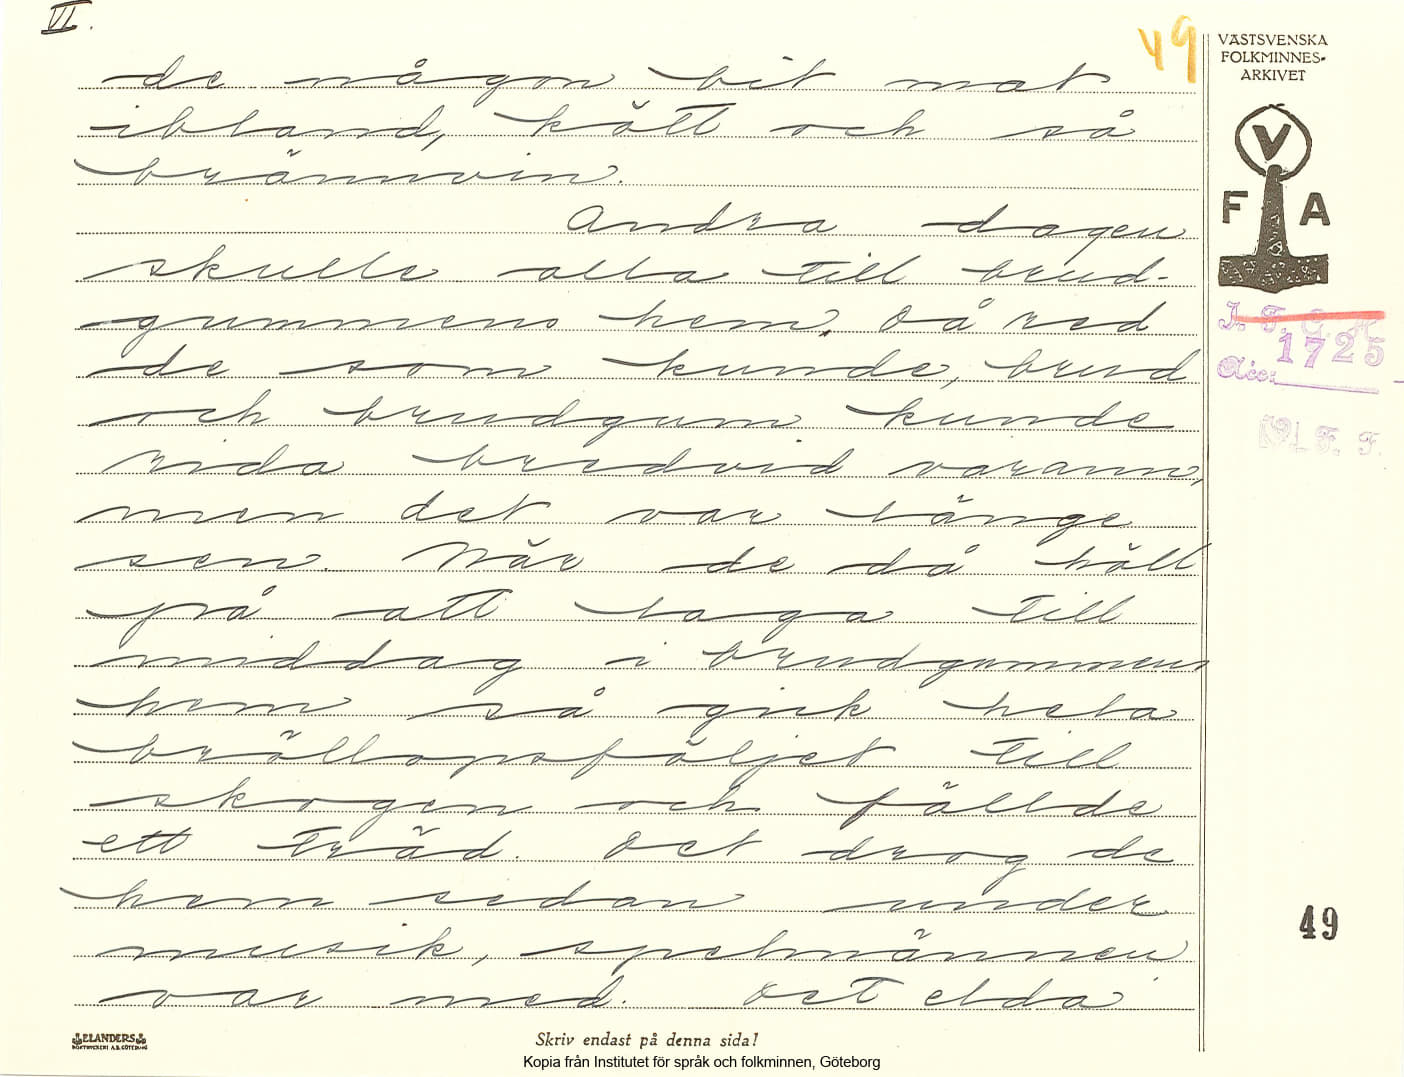 VI.
49
VÄSTSVENSKA
FOLKMINNES-
ARKIVET
V
F A
de någon bit mat
ibland, kött och så
brännvin.
Andra dagen
skulle alla till brud-
gummens hem. Då red
de som kunde, brud
och brudgum kunde
rida bredvid varann,
men det var länge
sen. När de då höll
på att laga till
middag i brudgummens
hem så gick hela
bröllopsföljet till
skogen och fällde
ett träd. Det drog de
hem sedan under
musik, spelmännen
var med. Det elda
I. F. G. H.
1725
Acc:
F. F.
49
ELANDERS
BOKTRYCKERI A.B. GÖTEBORG
Skriv endast på denna sida!
Kopia från Institutet för språk och folkminnen, Göteborg